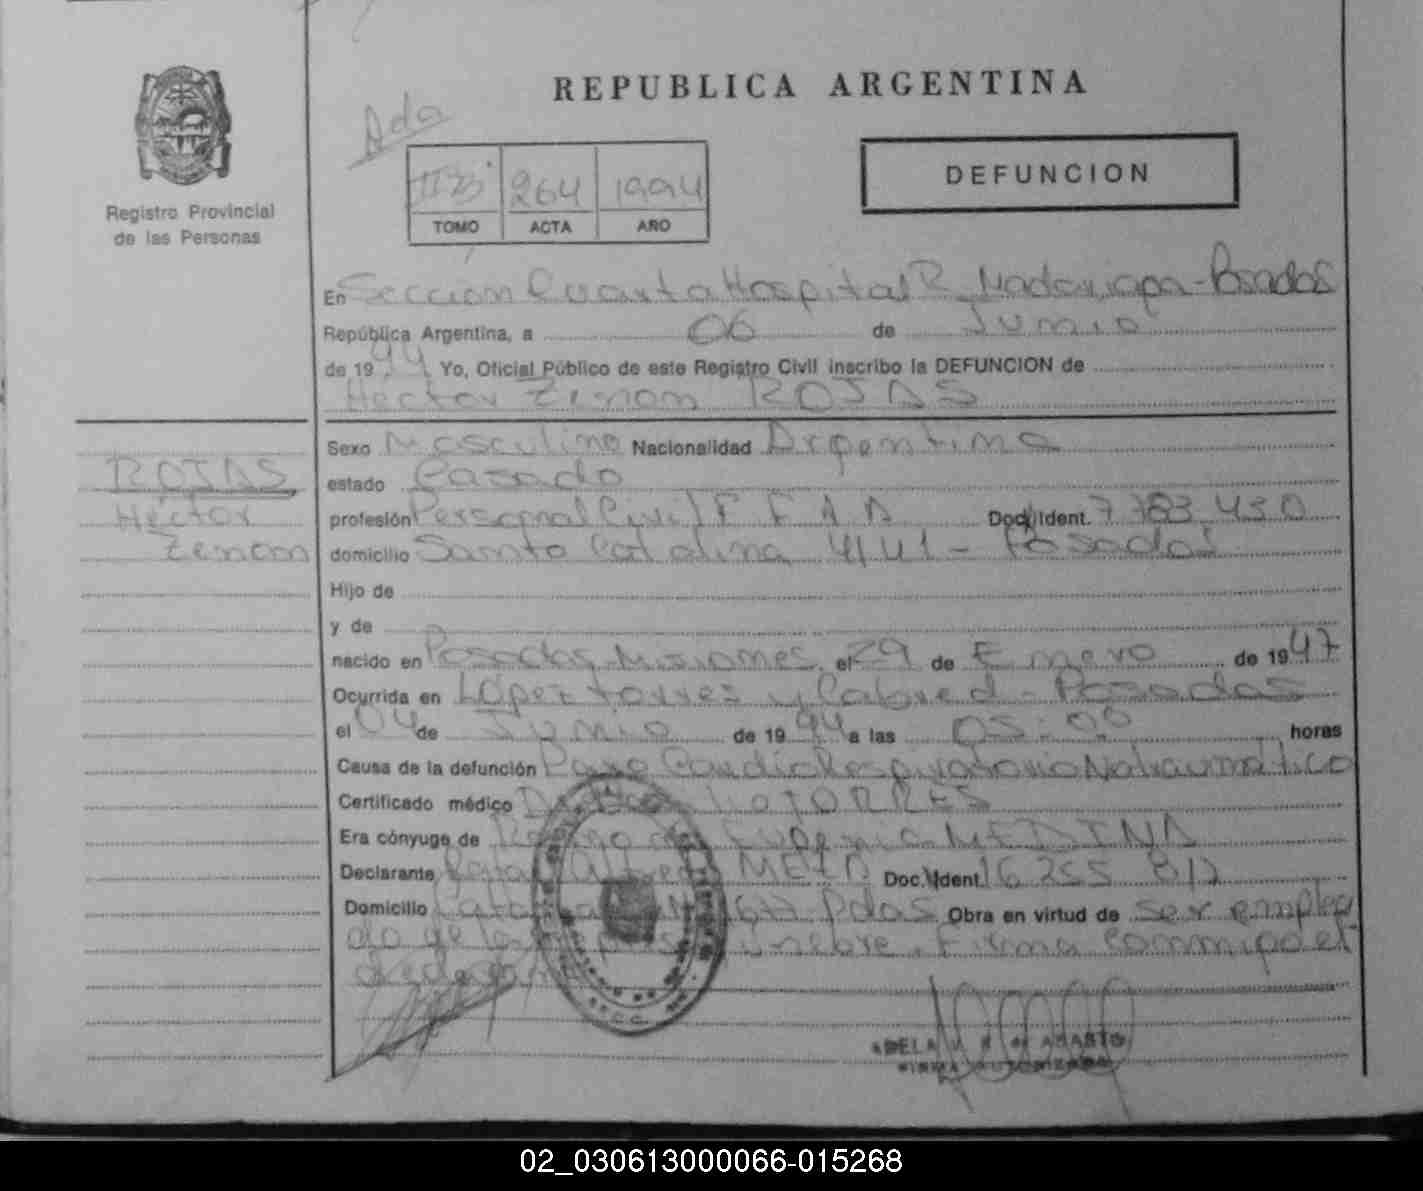 REPUBLICA ARGENTINA
Registro Provincial
de las Personas
264 1994
TOMO ACTA AÑO
DEFUNCION
En Sección Cuarta Hospital R. Madariaga - Posadas
República Argentina, a 06 de Junio
de 1994 Yo, Oficial Público de este Registro Civil inscribo la DEFUNCION de
Hector Zenon ROJAS
ROJAS
Héctor
Zenon
Sexo Masculino Nacionalidad Argentina
estado Casado
profesión Personal Civil F F A A Doc. Ident. 7.783.430
domicilio Santa Catalina 4141 - Posadas
Hijo de
y de
nacido en Posadas Misiones el 29 de Enero de 1947
Ocurrida en López torres y Cabred - Posadas
el 04 de Junio de 1994 a las 05:00 horas
Causa de la defunción Paro Cardio Respiratorio No traumático
Certificado médico TORRES
Era cónyuge de Eugenia MEDINA
Declarante MEZA Doc. Ident. 16 255 812
Domicilio 1677 Pdas Obra en virtud de ser emplea
do de la funebre. Firma conmigo el
declarante
ADELA
FIRMA AUTORIZADA
02_030613000066-015268